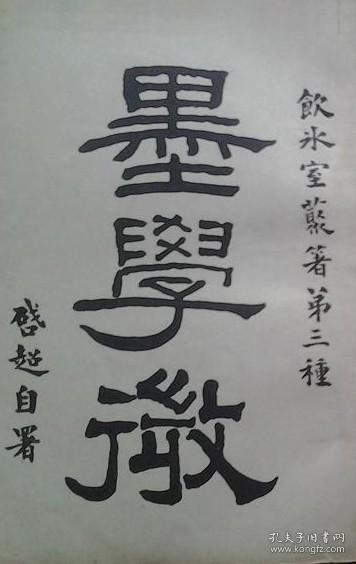 飲氷室叢著第三種
墨學微
啓超自署
孔夫子旧书网
www.kongfz.com